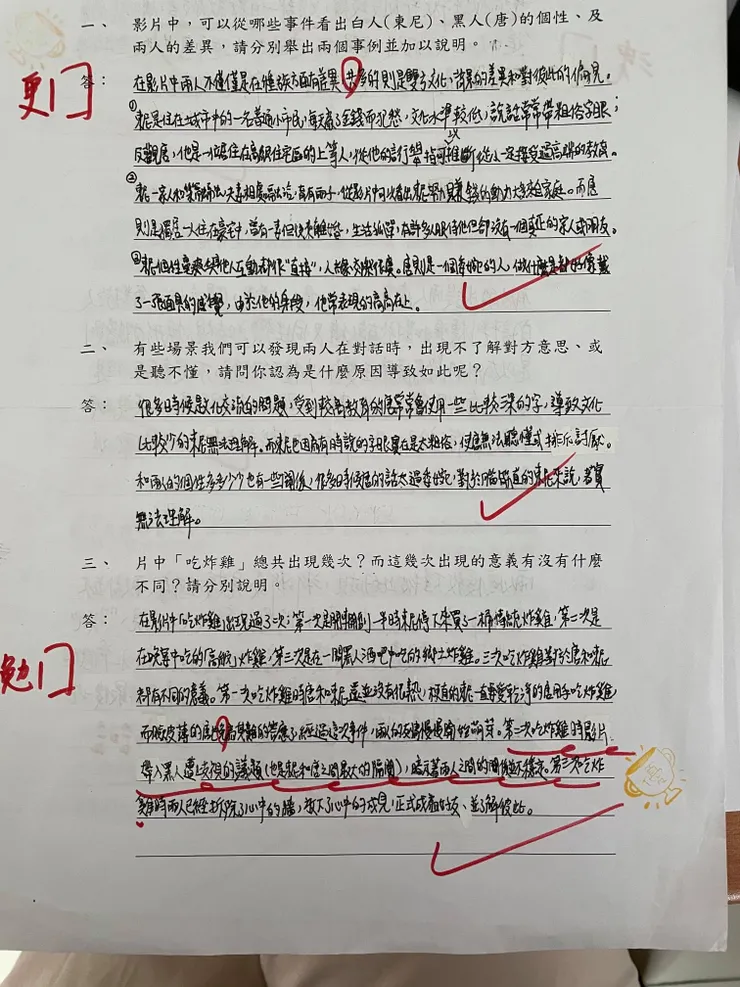 一、 影片中，可以從哪些事件看出白人(東尼)、黑人(唐)的個性、及
兩人的差異，請分別舉出兩個事例並加以說明。
更
答： 在影片中兩人不僅僅是在種族方面有差異，共多的則是雙方文化、背景的差異和對彼此的偏見。
①東尼是住在城市中的一名普通小市民，每天為了金錢而犯愁，文化水準較低，說話常常帶粗俗字眼；
反觀唐，他是一位居住在高級住宅區的上等人，從他的言行舉指可以推斷從小一定接受過高端的教育。
②東尼一家人和樂融融，夫妻相處融洽，育有兩子，從影片中可以看出東尼努力賺錢的動力大多來自家庭。而唐
則是獨居一人住在豪宅中，曾有一妻但後來離婚，生活孤單，有許多人服侍他但卻沒有一個真正的家人或朋友。
③東尼個性豪爽 與他人互動都作"直接"，人 。唐則是一個 的人，做什麼 像戴
了一張面具的感覺，由於他的身段，他常表現的高高在上。
二、 有些場景我們可以發現兩人在對話時，出現不了解對方意思、或
是聽不懂，請問你認為是什麼原因導致如此呢？
答： 很多時候是文化交流的問題，受到較高教育的唐常常會使用一些比較深的字，導致文化
比較少的東尼無法理解。而東尼也因為有時說的字眼實在是太粗俗，使唐無法聽懂或排斥討厭。
和兩人的個性多多少少也有一些關係，很多時候唐的話太過委婉，對於腦筋直的東尼來說，著實
無法理解。
三、 片中「吃炸雞」總共出現幾次？而這幾次出現的意義有沒有什麼
不同？請分別說明。
勉
答： 在影片中「吃炸雞」出現過了三次；第一次是開車開到一半時東尼停下來買了一桶傳統炸雞，第二次是
在晚宴中吃的「高級」炸雞，第三次是在一間黑人酒吧中吃的鄉土炸雞。三次吃炸雞對於唐和東尼
都有不同的意義。第一次吃炸雞時唐和東尼還並沒有很熟，極直的東尼一直要愛乾淨的唐用手吃炸雞，
而臉皮薄的唐也免為其難的答應了，經過這次事件，兩人的友情慢慢開始萌芽。第二次吃炸雞時影片
帶入黑人遭上歧視的議題(也是東尼和唐之間最大的隔閡)，暗示著兩人之間的關係並不穩定。第三次吃炸
雞時兩人已經拆除了心中的牆，放下了心中的成見，正式成為好友、並了解彼此。